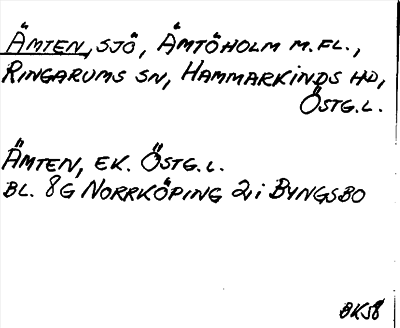 Ämten, sjö, Ämtöholm m.fl.,
Ringarums sn, Hammarkinds hd,
Östg.l.
Ämten, ek. Östg.l.
Bl. 8G Norrköping 2i Byngsbo
BK58